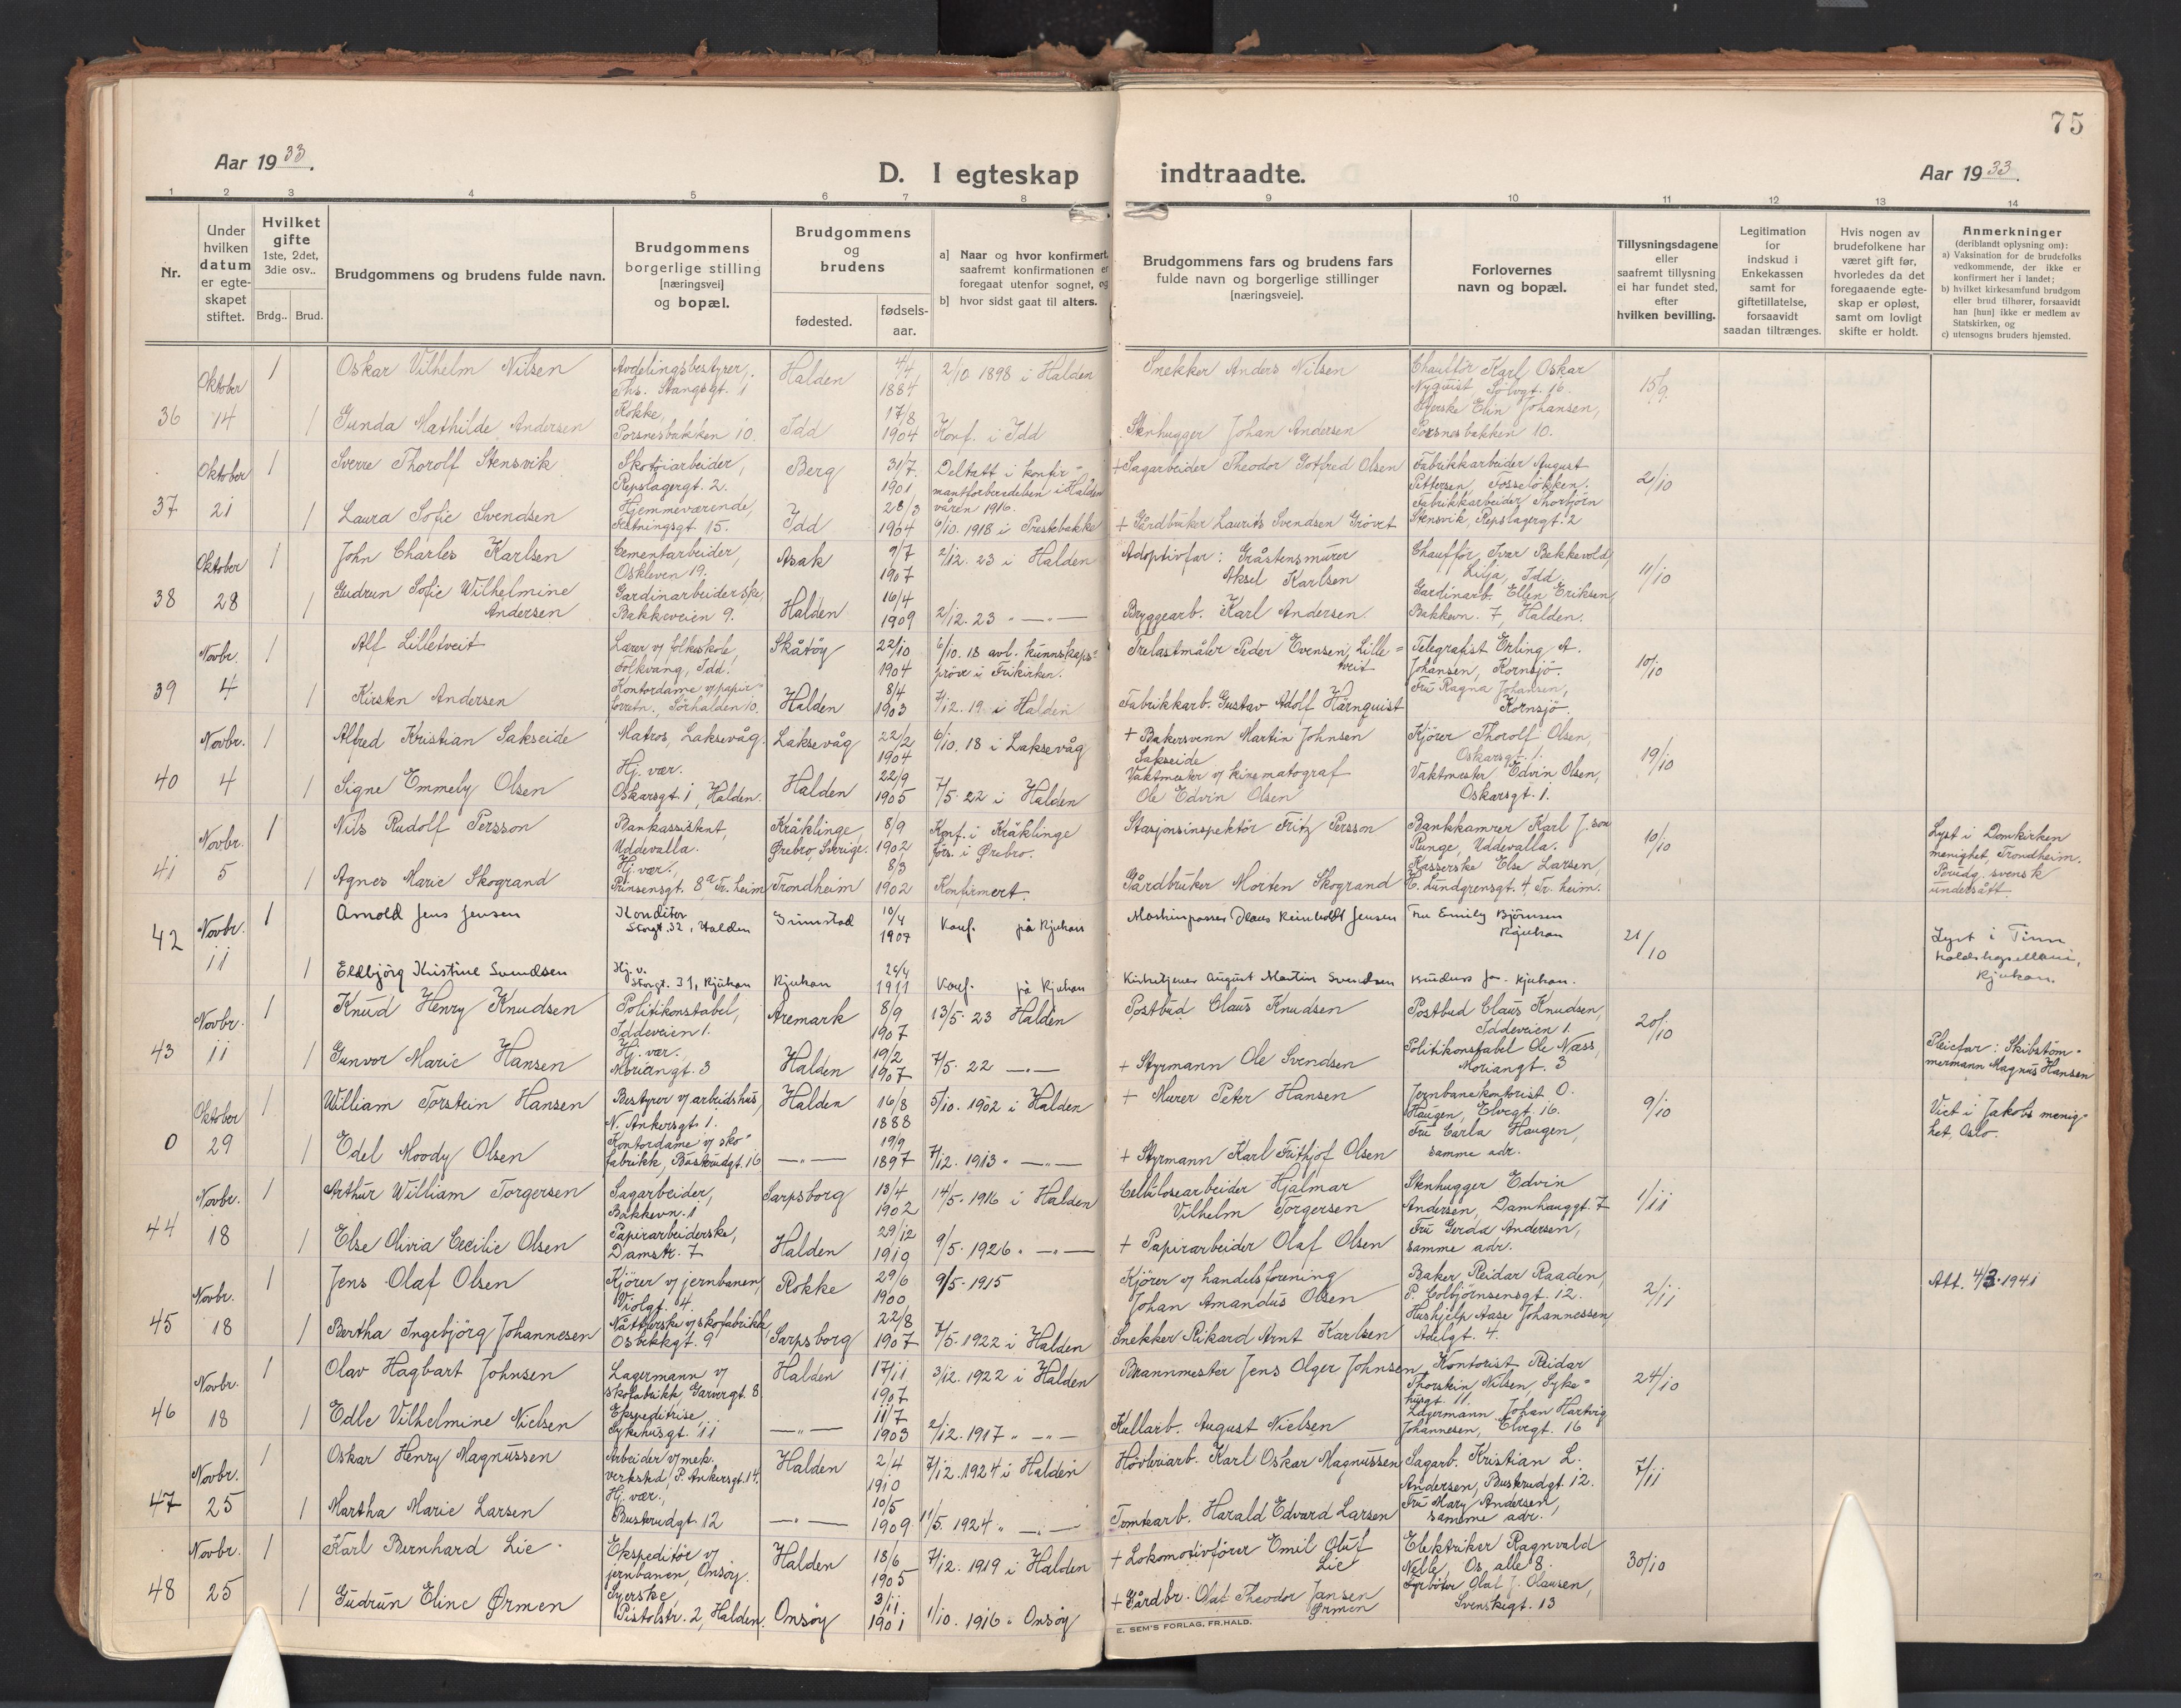 75
Aar 1933.
D. I egteskap indtraadte.
Aar 1933.
1 2 3 4 5 6 7 8 9 10 11 12 13 14
Nr.
Under hvilken datum er egteskapet stiftet.
Hvilket gifte 1ste, 2det, 3die osv..
Brdg.. Brud.
Brudgommens og brudens fulde navn.
Brudgommens borgerlige stilling [næringsvei] og bopæl.
Brudgommens og brudens
fødested.
fødsels-aar.
a] Naar og hvor konfirmert, saafremt konfirmationen er foregaat utenfor sognet, og
b] hvor sidst gaat til alters.
Brudgommens fars og brudens fars fulde navn og borgerlige stillinger [næringsveie].
Forlovernes navn og bopæl.
Tillysningsdagene eller saafremt tillysning ei har fundet sted, efter hvilken bevilling.
Legitimation for indskud i Enkekassen samt for giftetillatelse, forsaavidt saadan tiltrænges.
Hvis nogen av brudefolkene har været gift før, hvorledes da det foregaaende egteskap er opløst, samt om lovligt skifte er holdt.
Anmerkninger (deriblandt oplysning om):
a) Vaksination for de brudefolks vedkommende, der ikke er konfirmert her i landet;
b) hvilket kirkesamfund brudgom eller brud tilhører, forsaavidt han [hun] ikke er medlem av Statskirken, og
c) utensogns bruders hjemsted.
36 Oktober 14 1 Oskar Vilhelm Nilsen Avdelingsbestyrer, Ths. Stangsgt. 1 Halden 4/4 1884 2/10 1898 i Halden Snekker Anders Nilsen Chauffør Karl Oskar Nyquist, Sølvgt. 16. 15/9.
1 Gunda Mathilde Andersen Kokke, Porsnesbakken 10. Idd 17/8 1904 Konf. i Idd Stenhugger Johan Andersen Syerske Elin Johansen, Porsnesbakken 10.
37 Oktober 21 1 Sverre Thorolf Stensvik Skotøiarbeider, Repslagergt. 2. Berg 31/7 1901 Deltatt i konfirmantforberedelsen i Halden våren 1916. + Sagarbeider Theodor Gotfred Olsen Fabrikkarbeider August Pettersen, Fosseløkken. 2/10
1 Laura Sofie Svendsen Hjemmeværende, Festningsgt. 15. Idd 28/3 1904 6/10. 1918 i Prestebakke + Gårdbruker Laurits Svendsen Grövet Fabrikkarbeider Thorbjörn Stensvik, Repslagergt. 2
38 Oktober 28 1 John Charles Karlsen Cementarbeider, Oskleven 19. Asak 9/7 1907 2/12. 23 i Halden Adoptivfar: Gråstensmurer Aksel Karlsen Chauffør Ivar Bekkevold, Lilja, Idd. 11/10
1 Gudrun Sofie Wilhelmine Andersen Gardinarbeiderske, Bakkeveien 9. Halden 16/4 1909 2/12. 23 " — " — Bryggearb. Karl Andersen. Gardinarb. Ellen Eriksen, Bakkevn. 7, Halden.
39 Novbr. 4 1 Alf Lilletveit Lærer v/ folkeskole, Folkvang, Idd. Skåtøy 22/10 1904 6/10. 18 avl. kunnskapsprøve i Frikirken. Trelastmåler Peder Evensen Lilletveit Telegrafist Erling A. Johansen, Kornsjø. 10/10
1 Kirsten Andersen Kontordame v/ papirforretn., Sørhalden 10. Halden 8/4 1903 7/12. 19 i Halden Fabrikkarb. Gustav Adolf Härnquist Fru Ragna Johansen, Kornsjø.
40 Novbr. 4 1 Alfred Kristian Sakseide Matros, Laksevåg. Laksevåg 22/2 1904 6/10. 18 i Laksevåg + Bakersvenn Martin Johnsen Sakseide Kjører Thorolf Olsen, Oskarsgt. 1. 19/10
1 Signe Emmely Olsen Hj. vær. Oskarsgt. 1, Halden. Halden 22/9 1905 7/5. 22 i Halden Vaktmester v/ kinematograf Ole Edvin Olsen Vaktmester Edvin Olsen, Oskarsgt. 1.
41 Novbr. 5 1 Nils Rudolf Persson Bankassistent, Uddevalla. Kräklinge, Ørebro, Sverige. 8/9 1902 Konf. i Kräklinge förs. i Ørebro. Stasjonsinspektör Fritz Persson Bankkamrer Karl J:son Runge, Uddevalla. 10/10 Lyst i Domkirken menighet, Trondheim. Brudg. svensk undersått.
1 Agnes Marie Skogrand Hj. vær., Prinsensgt. 8a Tr.heim Trondheim 8/3 1902 Konfirmert. Gårdbruker Morten Skogrand Kasserske Else Larsen, H. Lundgrensgt. 4 Tr.heim.
42 Novbr. 11 1 Arnold Jens Jensen Konditor Storgt. 32, Halden Grimstad 10/4 1907 Konf. på Rjukan Maskinpasser Claus Reinholdt Jensen Fru Emily Björnsen Rjukan 21/10 Lyst i Tinn Rjukan.
1 Eldbjörg Kristine Svendsen Hj. v. Storgt. 31, Rjukan Rjukan 26/4 1911 Konf. på Rjukan Kirketjener August Martin Svendsen Rjukan.
43 Novbr. 11 1 Knud Henry Knudsen Politikonstabel, Iddeveien 1. Aremark 8/9 1907 13/5. 23 Halden Postbud Claus Knudsen Postbud Claus Knudsen, Iddeveien 1. 20/10
1 Gunvor Marie Hansen Hj. vær., Moriangt. 3 Halden 19/2 1907 7/5. 22 — " — + Styrmann Ole Svendsen Politikonstabel Ole Næss, Moriangt. 3 Pleiefar: Skibstømmermann Magnus Hansen
0 Oktober 29 1 William Torstein Hansen Bestyrer v/ arbeidshus, N. Ankersgt. 1. Halden 16/8 1888 5/10. 1902 i Halden + Murer Peter Hansen Jernbanekontorist O. Haugen, Elvegt. 16. 9/10 Viet i Jakobs menighet, Oslo.
1 Edel Moody Olsen Kontordame v/ skofabrikk, Buskrudgt. 16 — " — 19/9 1897 7/12. 1913 " — " — + Styrmann Karl Frithjof Olsen Fru Carla Haugen, samme adr.
44 Novbr. 18 1 Arthur William Torgersen Sagarbeider, Bakkevn. 1 Sarpsborg 13/4 1902 14/5. 1916 i Halden Cellulosearbeider Hjalmar Vilhelm Torgersen Stenhugger Edvin Andersen, Damhauggt. 7 1/11
1 Else Olivia Cecilie Olsen Papirarbeiderske, Damstr. 7 Halden 29/12 1910 9/5. 1926 " — " — + Papirarbeider Olaf Olsen Fru Gerda Andersen, samme adr.
45 Novbr. 18 1 Jens Olaf Olsen Kjører v/ jernbanen, Violgt. 4. Rokke 29/6 1900 9/5. 1915 Kjører v/ handelsforening Johan Amandus Olsen Baker Reidar Raaden, P. Colbjørnsensgt. 12. 2/11 Att. 4/3. 1941
1 Bertha Ingebjörg Johannesen Nåtlerske v/ skofabrikk, Osbekkgt. 9 Sarpsborg 22/8 1907 7/5. 1922 i Halden Snekker Rikard Arnt Karlsen Hushjelp Aase Johannessen, Adelgt. 4.
46 Novbr. 18 1 Olav Hagbart Johnsen Lagermann v/ skofabrikk, Garvergt. 8 Halden 17/11 1907 3/12. 1922 i Halden Brannmester Jens Olger Johnsen Kontorist Reidar Thorstein Nilsen, Sykehusgt. 11. 24/10
1 Edle Vilhelmine Nielsen Ekspeditrise, Sykehusgt. 11 — " — 11/7 1903 2/12. 1917 " — " — August Nielsen Lagermann Johan Hartvig Johannesen, Elvegt. 16
47 Novbr. 25 1 Oskar Henry Magnussen Arbeider v/ mek. verksted, P. Ankersgt. 14. Halden 2/4 1910 7/12. 1924 i Halden Høvleriarb. Karl Oskar Magnussen Sagarb. Kristian L. Andersen, Buskrudgt. 12. 7/11
1 Martha Marie Larsen Hj. vær., Buskrudgt. 12 — " — 10/5 1909 11/5. 1924 " — " — Tomtearb. Harald Edvard Larsen Fru Mary Andersen, samme adr.
48 Novbr. 25 1 Karl Bernhard Lie Ekspeditør v/ jernbanen, Onsøy. Halden 18/6 1905 7/12. 1919 i Halden + Lokomotivfører Emil Oluf Lie Elektriker Ragnvald Nelle, Os allé 8. 30/10
1 Gudrun Eline Ørmen Syerske, Pistolstr. 2, Halden. Onsøy 3/11 1901 1/10. 1916 " Onsøy + Gårdbr. Olat Theodor Jansen Ørmen Fyrbøter Olaf J. Olausen, Svenskegt. 13
E. SEM'S FORLAG, FR.HALD.